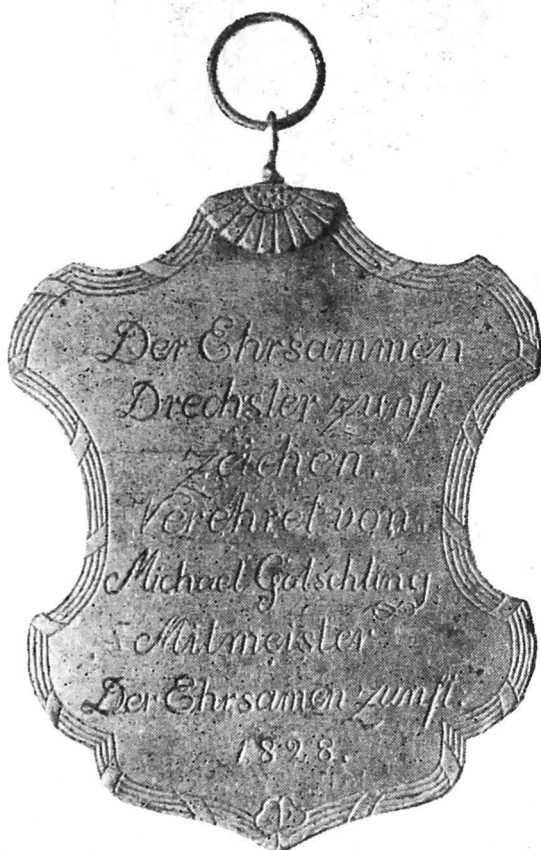 Der Ehrsammen
Drechsler zunft
zeichen.
Verehret von
Michael Gotschling
Mitmeister
Der Ehrsamen zunft.
1828.